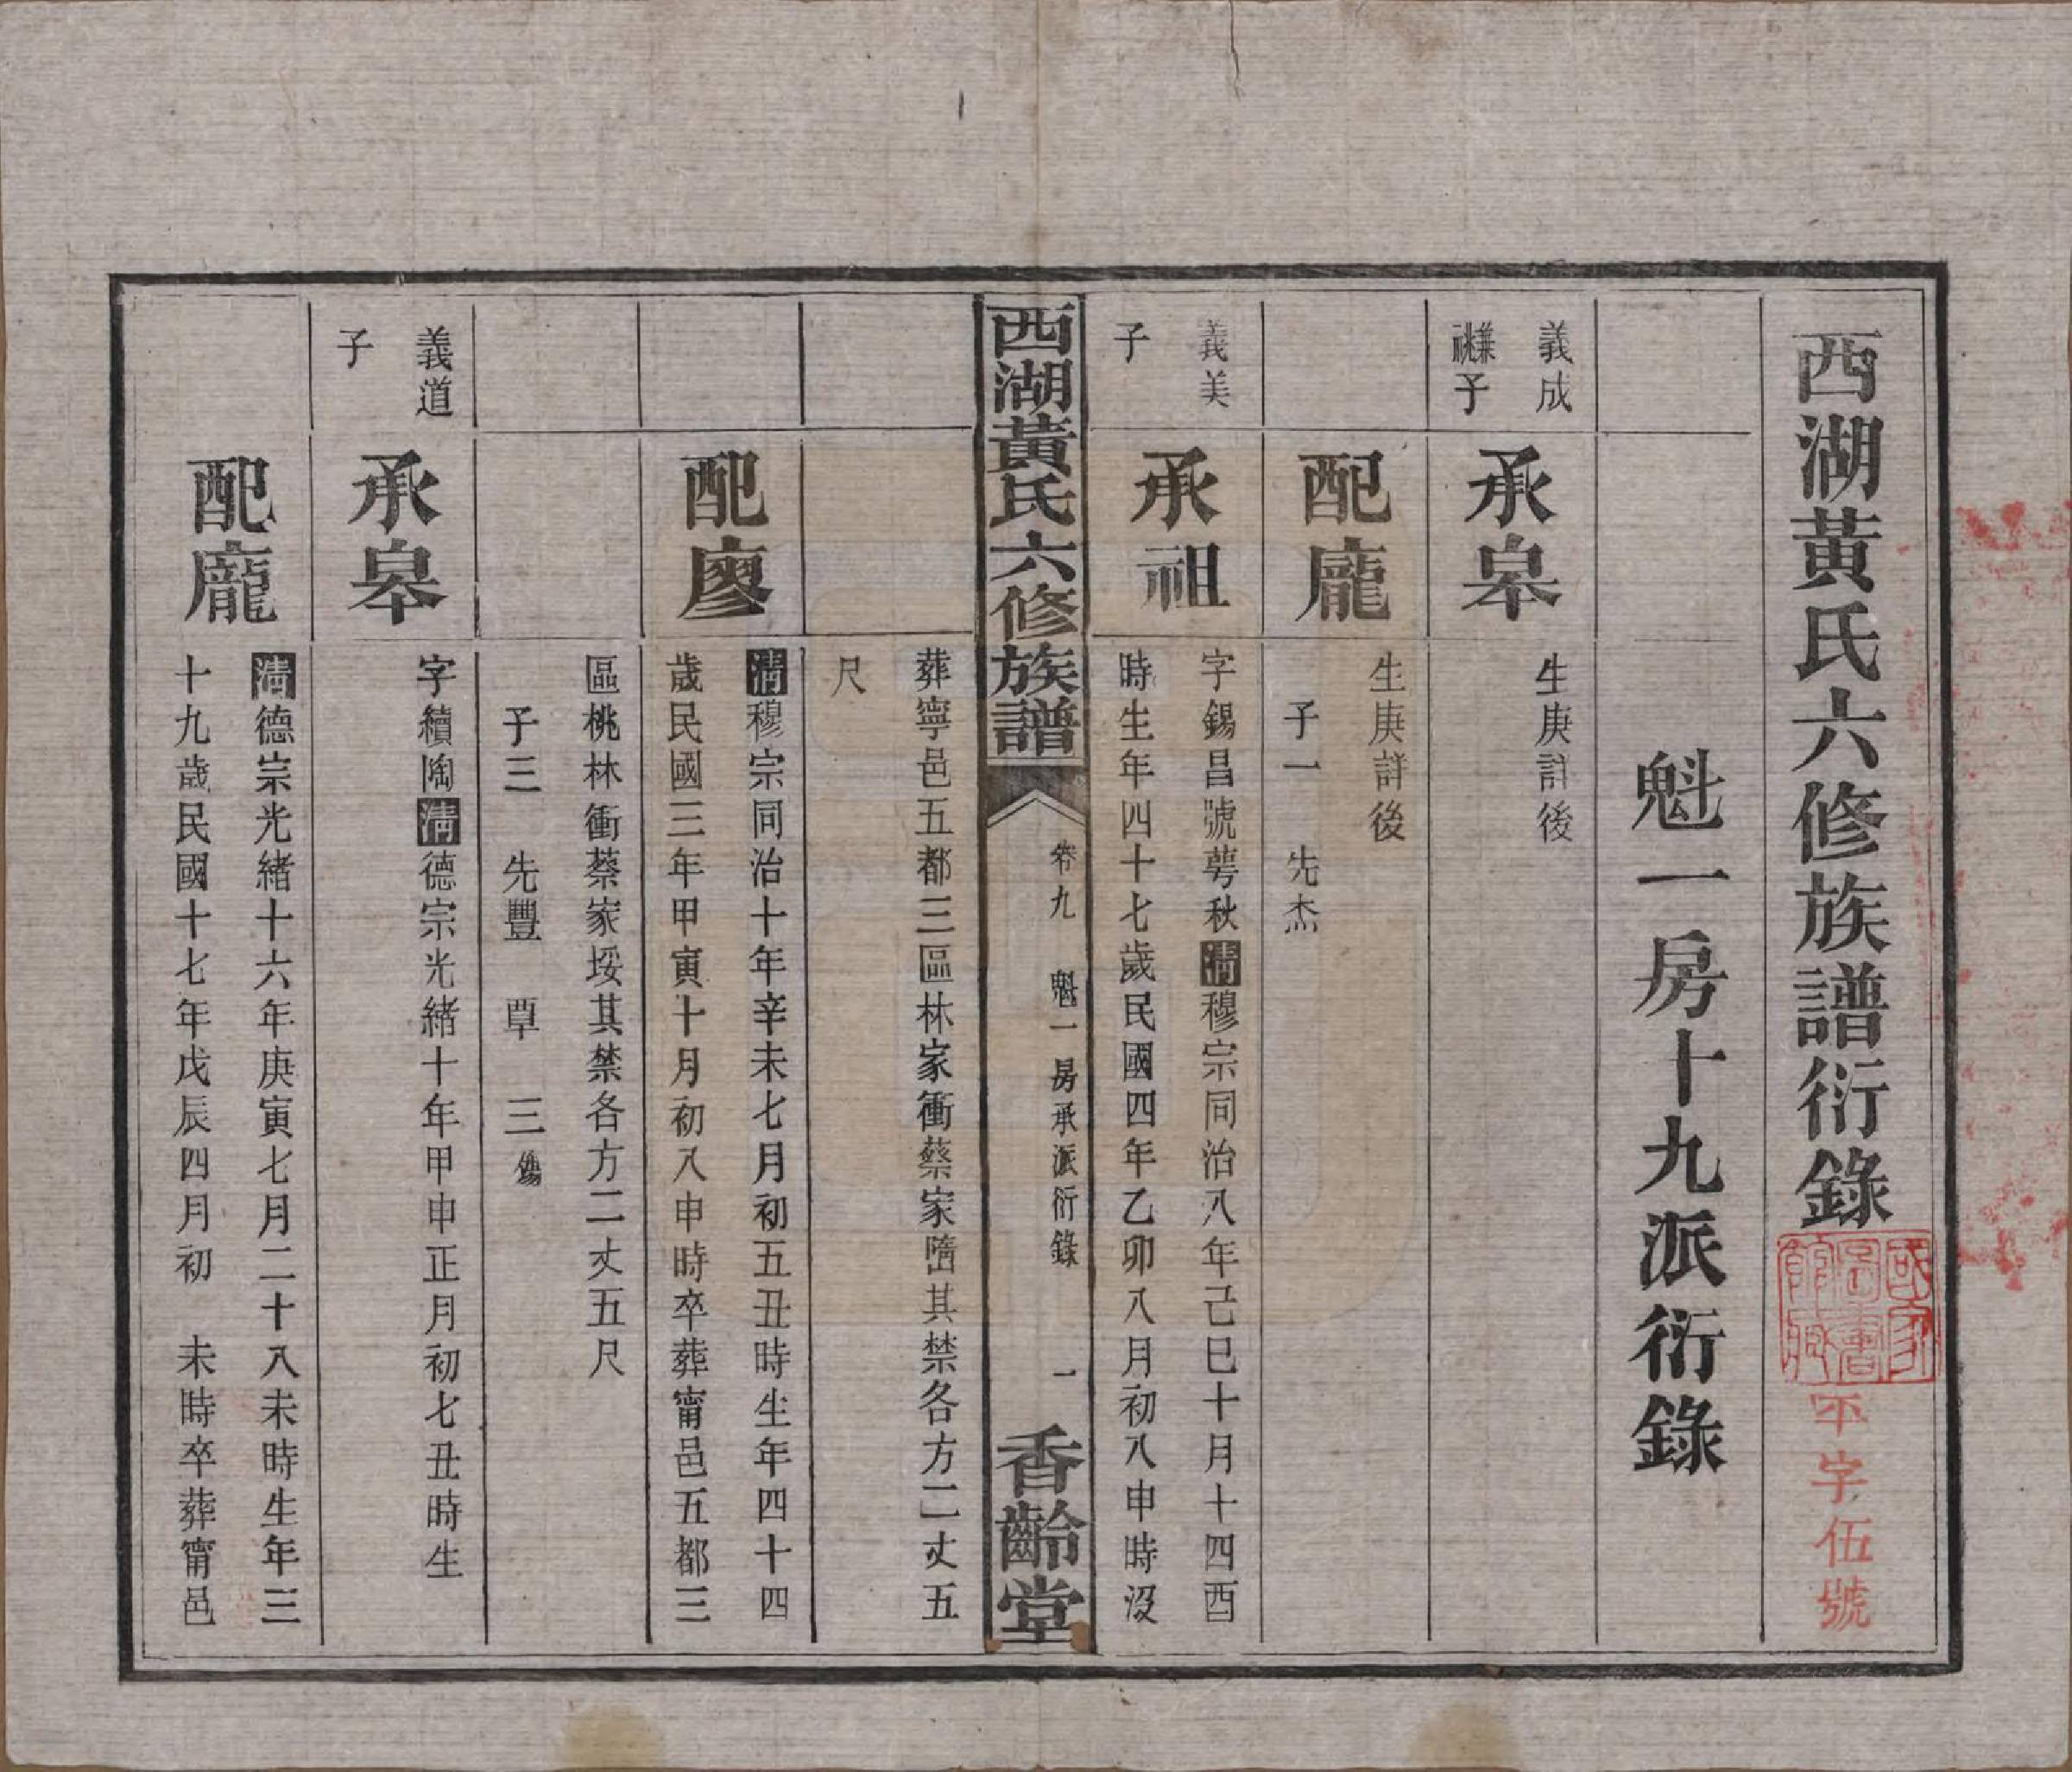 西湖黃氏六修族譜衍錄
國家圖書館藏
平字伍號
魁一房十九派衍錄
義成
兼祧子
承皋
生庚詳後
配龐
生庚詳後
子一 先杰
義美
子
承祖
字錫昌號萼秋清穆宗同治八年己巳十月十四酉
時生年四十七歲民國四年乙卯八月初八申時沒
西湖黃氏六修族譜
卷九 魁一房承派衍錄 一
香齡堂
葬寧邑五都三區林家衝蔡家其禁各方二丈五
尺
配廖
清穆宗同治十年辛未七月初五丑時生年四十四
歲民國三年甲寅十月初八申時卒葬甯邑五都三
區桃林衝蔡家垵其禁各方二丈五尺
子三 先豐 覃 三殤
義道
子
承皋
字續陶清德宗光緒十年甲申正月初七丑時生
配龐
清德宗光緒十六年庚寅七月二十八未時生年三
十九歲民國十七年戊辰四月初 未時卒葬甯邑